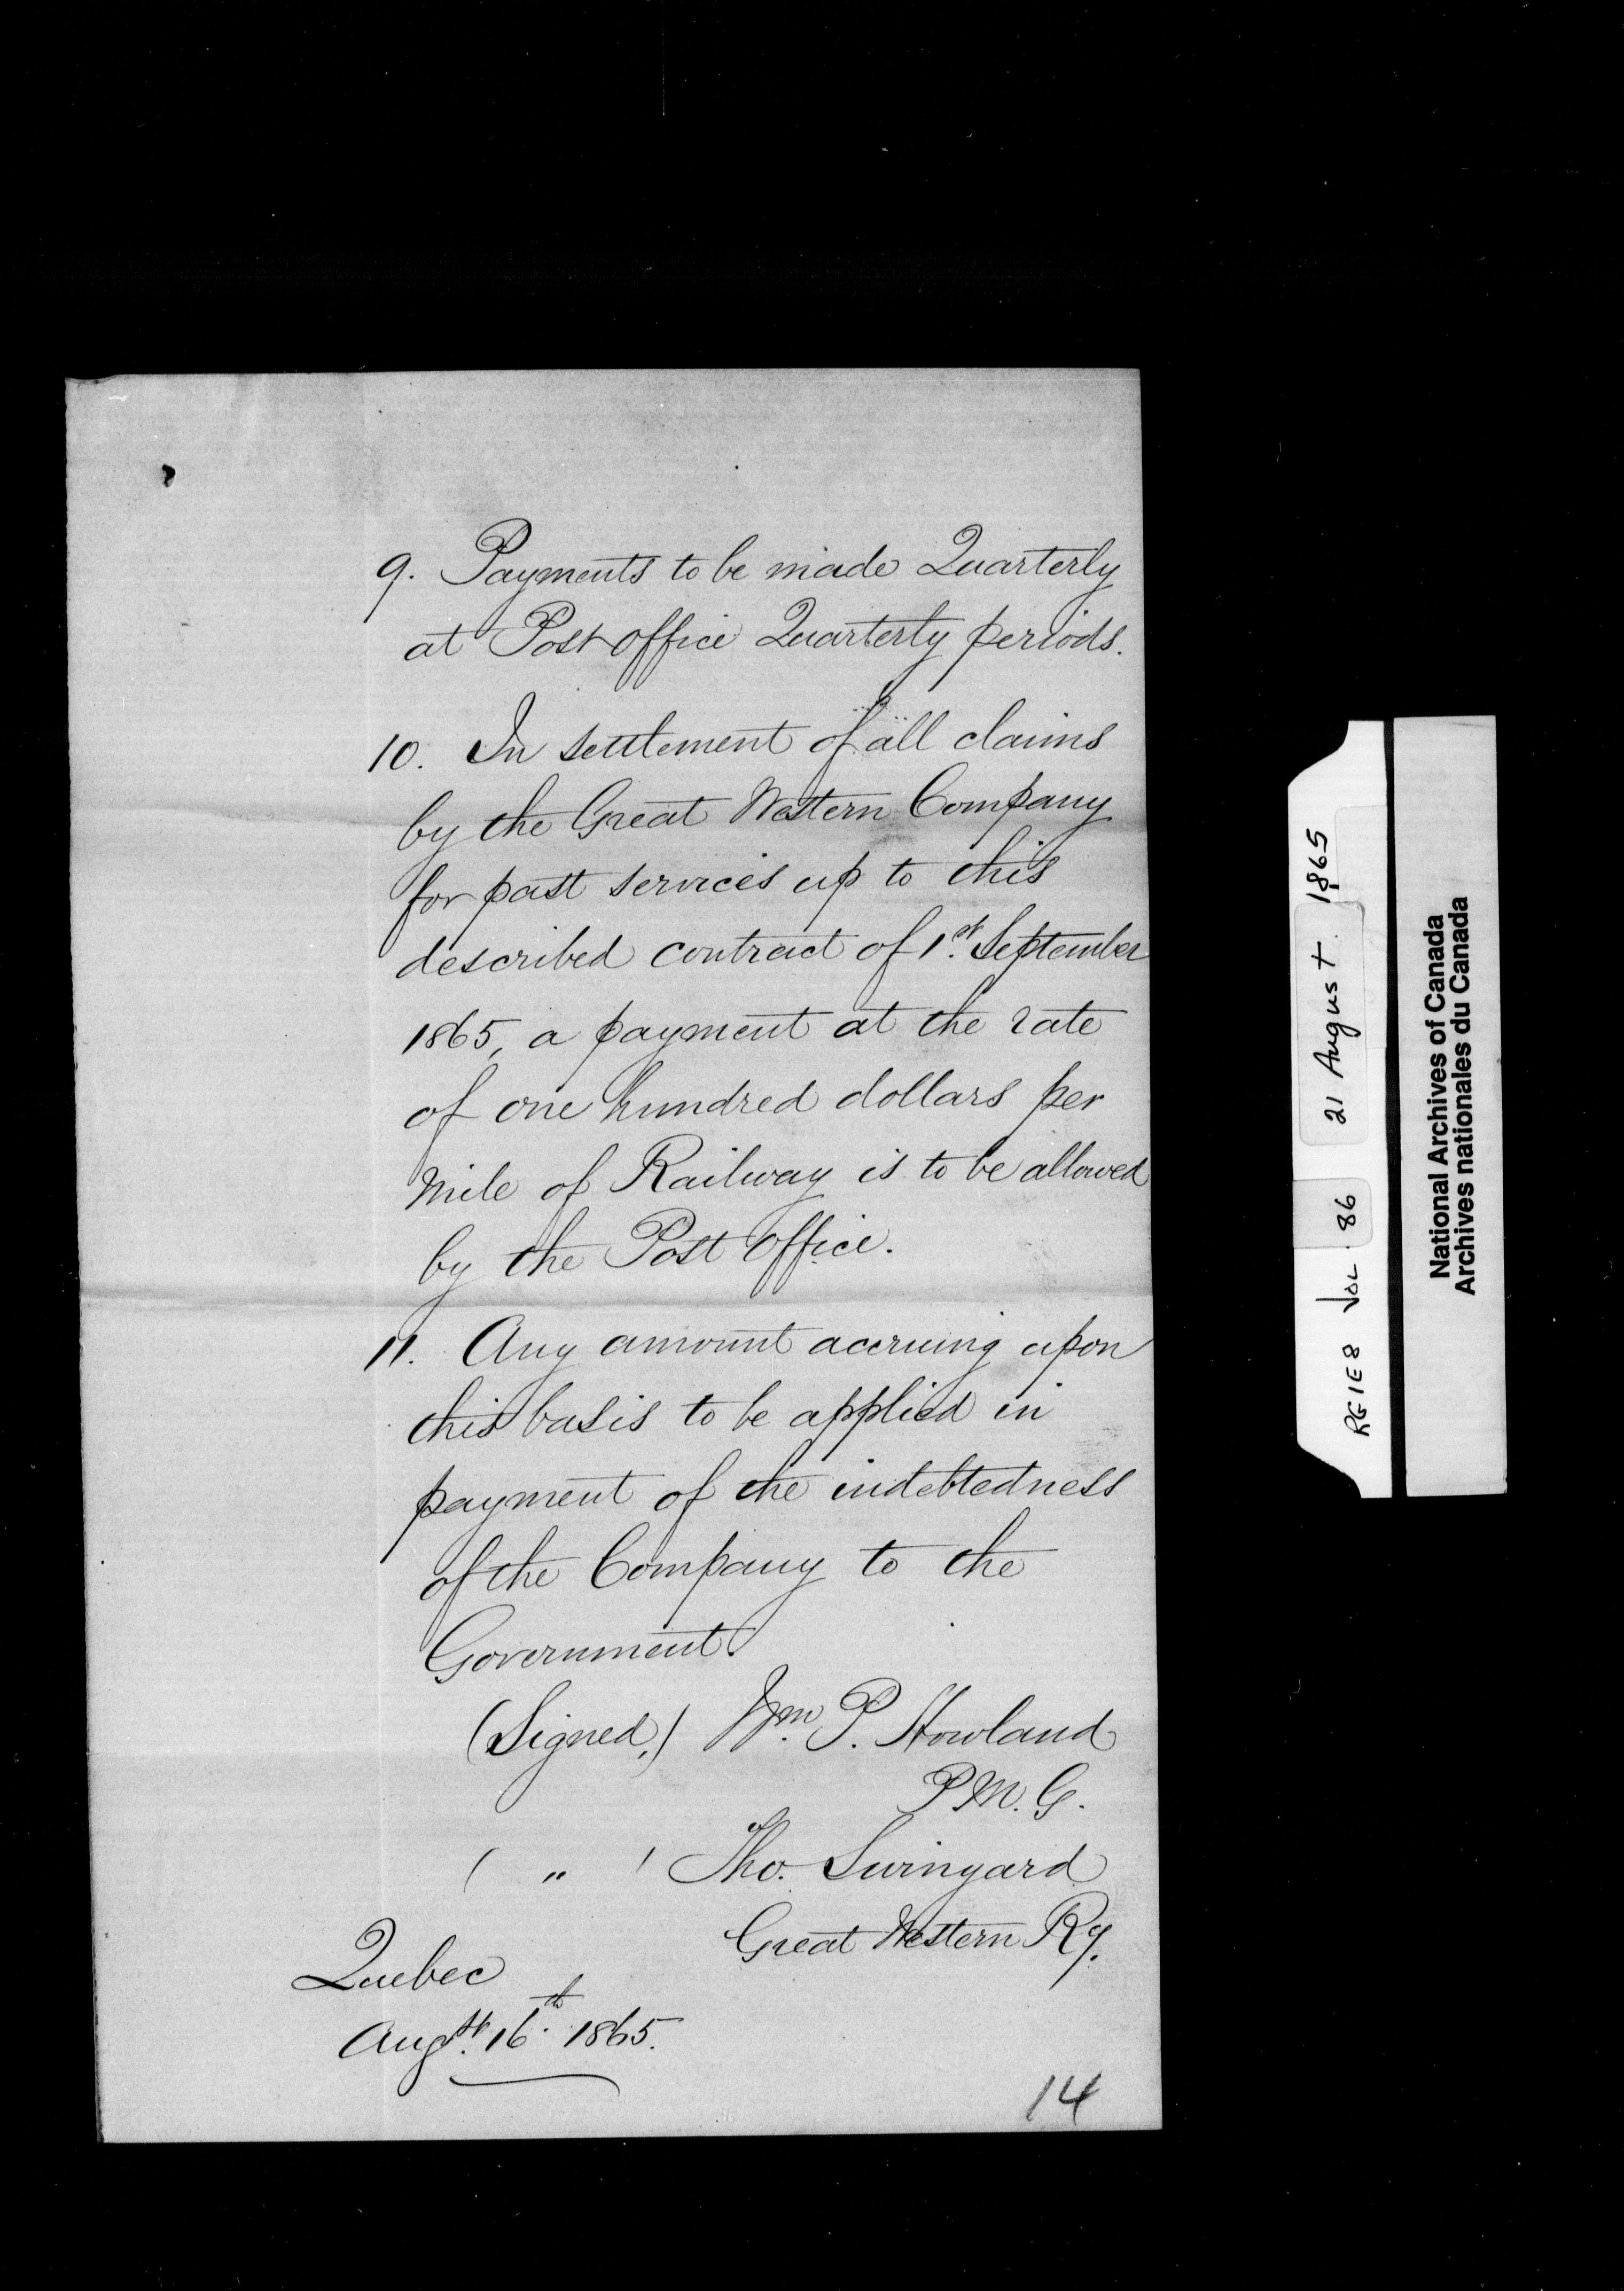 9. Payments to be made Quarterly
at Post office Quarterly periods.
10. In settlement of all claims
by the Great Western Company
for past services up to this
described contract of 1st. September
1865, a payment at the rate
of one hundred dollars per
mile of Railway is to be allowed
by the Post Office.
11. Any amount accruing upon
this basis to be applied in
payment of the indebtedness
of the Company to the
Government.
(Signed,) Wm. P. Howland
P.M.G.
( " ) Tho. Swinyard
Great Western Ry.
Quebec
Augst. 16th. 1865.
14
RG1E8 Vol. 86 21 August 1865
National Archives of Canada
Archives nationales du Canada